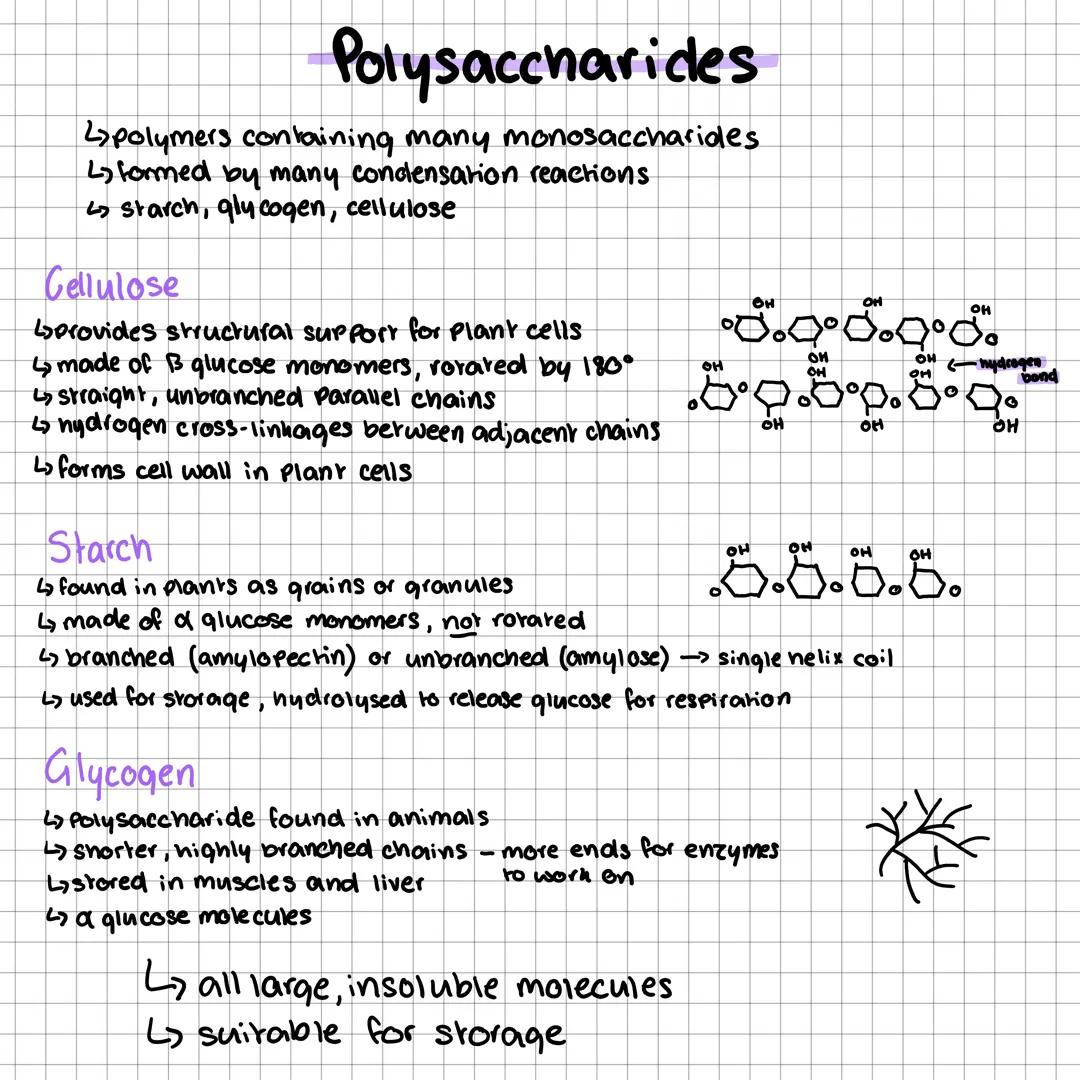 Polysaccharides
↳ polymers containing many monosaccharides
↳ formed by many condensation reactions
↳ starch, glycogen, cellulose
Cellulose
↳ provides structural support for plant cells
↳ made of β glucose monomers, rotated by 180°
↳ straight, unbranched parallel chains
↳ hydrogen cross-linkages between adjacent chains
↳ forms cell wall in plant cells
OH OH OH
O O O O O O
OH OH
← hydrogen bond
OH OH OH
O O O O O O O
OH OH OH
Starch
↳ found in plants as grains or granules
↳ made of α glucose monomers, not rotated
↳ branched (amylopectin) or unbranched (amylose) → single helix coil
↳ used for storage, hydrolysed to release glucose for respiration
OH OH OH OH
O O O O O
Glycogen
↳ polysaccharide found in animals
↳ shorter, highly branched chains – more ends for enzymes
to work on
↳ stored in muscles and liver
↳ α glucose molecules
↳ all large, insoluble molecules
↳ suitable for storage